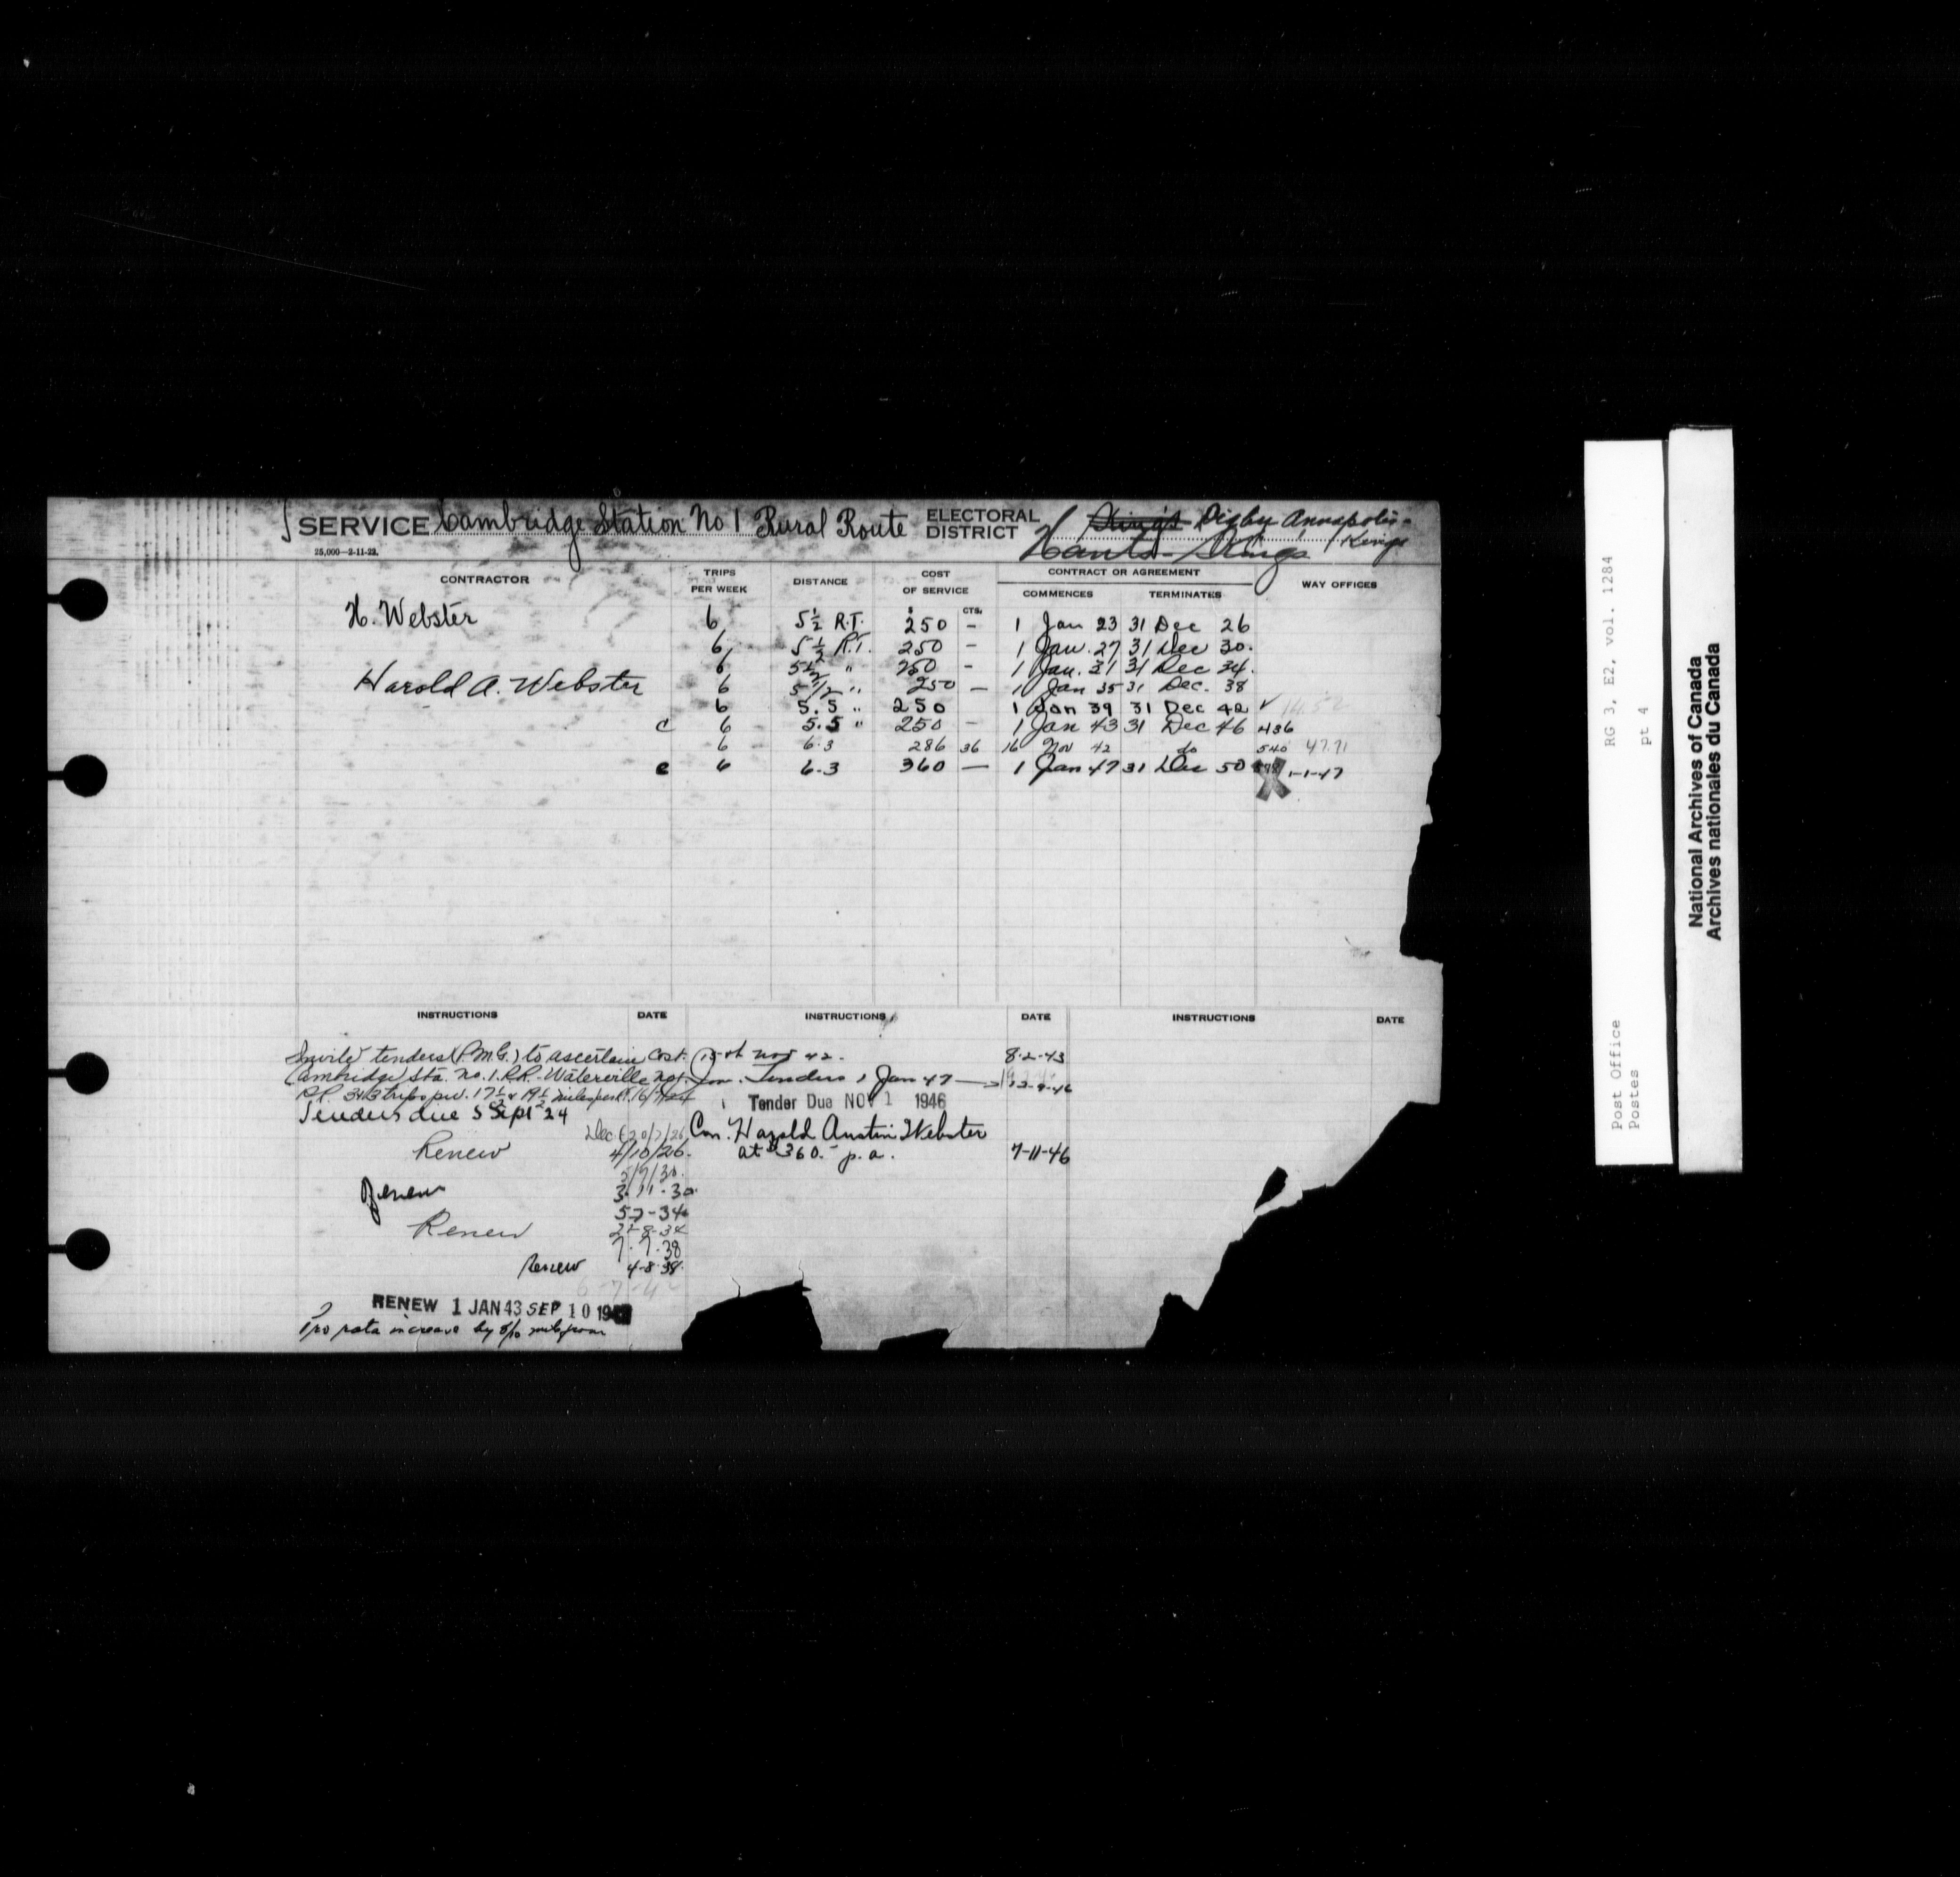 SERVICE Cambridge Station No 1 Rural Route ELECTORAL DISTRICT Kings Digby Annapolis - Kings
Hants - Kings
25,000—2-11-22.
CONTRACTOR TRIPS PER WEEK DISTANCE COST OF SERVICE CONTRACT OR AGREEMENT WAY OFFICES
COMMENCES TERMINATES
$ CTS.
H. Webster 6 5½ R.T. 250 - 1 Jan 23 31 Dec 26
6 5½ R.T. 250 - 1 Jan. 27 31 Dec 30.
6 5½ " 250 - 1 Jan. 31 31 Dec 34.
Harold A. Webster 6 5½ " 250 - 1 Jan 35 31 Dec. 38
6 5.5 " 250 1 Jan 39 31 Dec 42 ✓ 14.52
c 6 5.5 " 250 - 1 Jan 43 31 Dec 46 436
6 6.3 286 36 16 Nov 42 do 540 47.71
c 6 6.3 360 — 1 Jan 47 31 Dec 50 1-1-47
INSTRUCTIONS DATE INSTRUCTIONS DATE INSTRUCTIONS DATE
Invite tenders (P.M.G.) to ascertain cost.
Cambridge Sta. No. 1. R.R. - Waterville No 1.
R.R. 3 trips p.w. 17½ & 19½ miles
Tenders due 5 Sept 24
Dec 20/7/26
Renew 4/10/26.
5/7/30.
Renew 3-11-30
5-7-34
Renew 22-8-34
7-7-38
Renew 4-8-38.
6-7-42
RENEW 1 JAN 43 SEP 10 194
Pro rata increase by 8/10 mile from
15th Nov 42. 8-2-43
Inv. Tenders 1 Jan 47 — 12-9-46
Tender Due NOV 1 1946
Con. Harold Austin Webster
at $360.- p.a. 7-11-46
Post Office RG 3, E2, vol. 1284
Postes pt 4
National Archives of Canada
Archives nationales du Canada